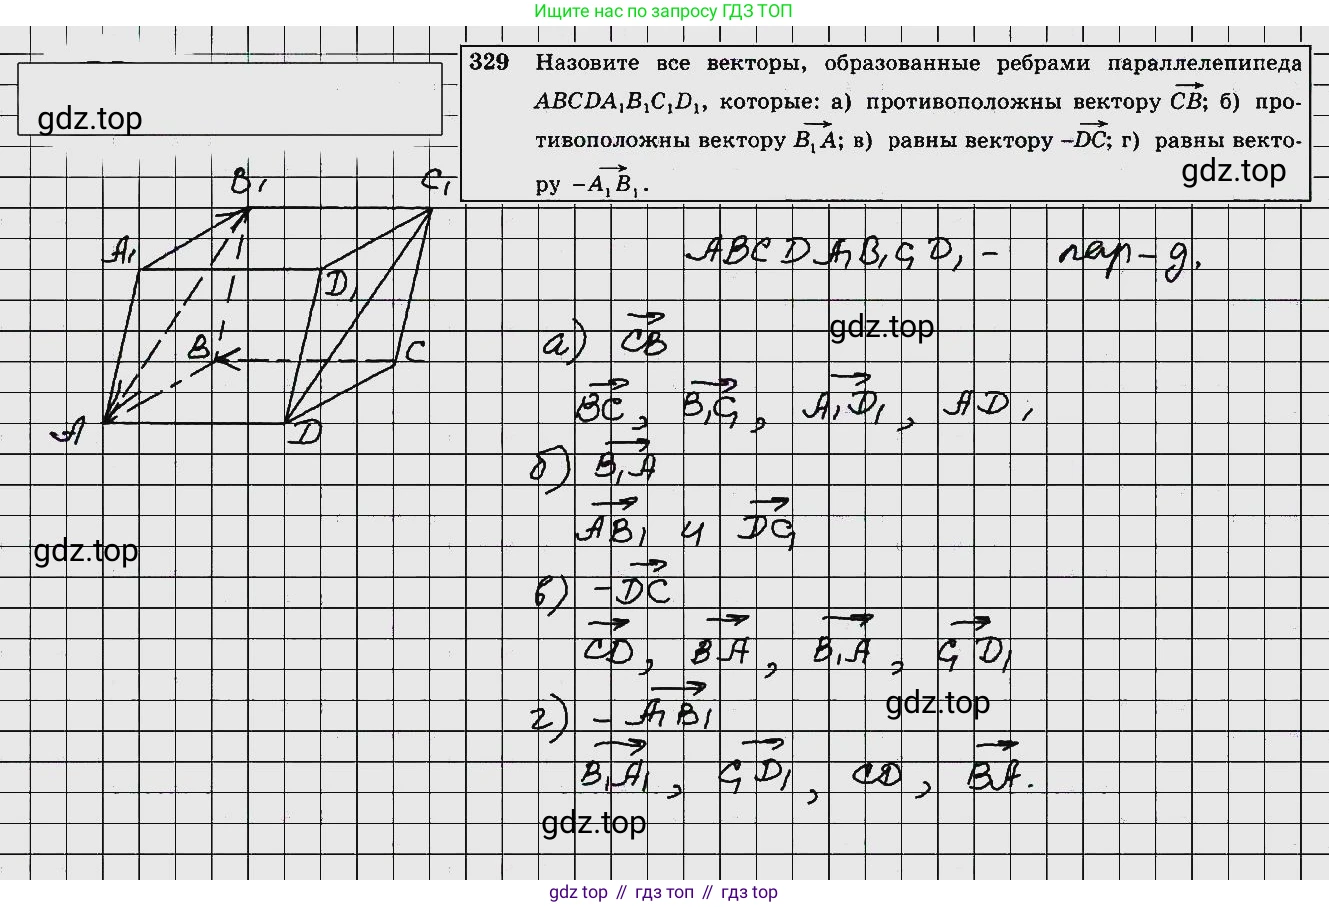 Ищите нас по запросу ГДЗ ТОП
gdz.top
329 Назовите все векторы, образованные ребрами параллелепипеда
ABCDA₁B₁C₁D₁, которые: а) противоположны вектору CB; б) про-
тивоположны вектору B₁A; в) равны вектору –DC; г) равны векто-
ру –A₁B₁.
gdz.top
B₁ C₁
A₁ D₁
B C
A D
ABCDA₁B₁C₁D₁ – пар-д.
gdz.top
а) CB
BC, B₁C₁, A₁D₁, AD,
б) B₁A
AB₁ и DC₁
gdz.top
в) –DC
CD, BA, B₁A, C₁D₁
gdz.top
г) –A₁B₁
B₁A₁, C₁D₁, CD, BA.
gdz.top
gdz top // гдз топ // gdz top